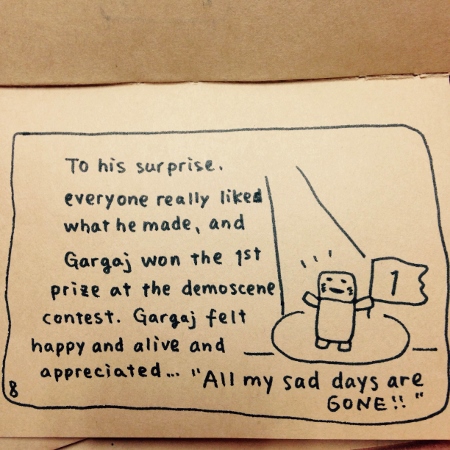 To his surprise.
everyone really liked
what he made, and
Gargaj won the 1st
prize at the demoscene
contest. Gargaj felt
happy and alive and
appreciated... "All my sad days are
GONE!!"
1
8